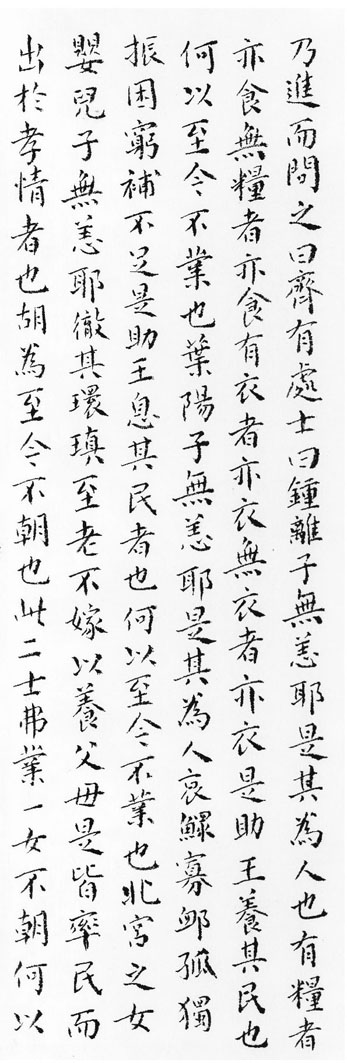 乃進而問之曰齊有處士曰鍾離子無恙耶是其為人也有糧者
亦食無糧者亦食有衣者亦衣無衣者亦衣是助王養其民也
何以至今不業也葉陽子無恙耶是其為人哀鰥寡卹孤獨
振困窮補不足是助王息其民者也何以至今不業也北宮之女
嬰兒子無恙耶徹其環瑱至老不嫁以養父母是皆率民而
出於孝情者也胡為至今不朝也此二士弗業一女不朝何以